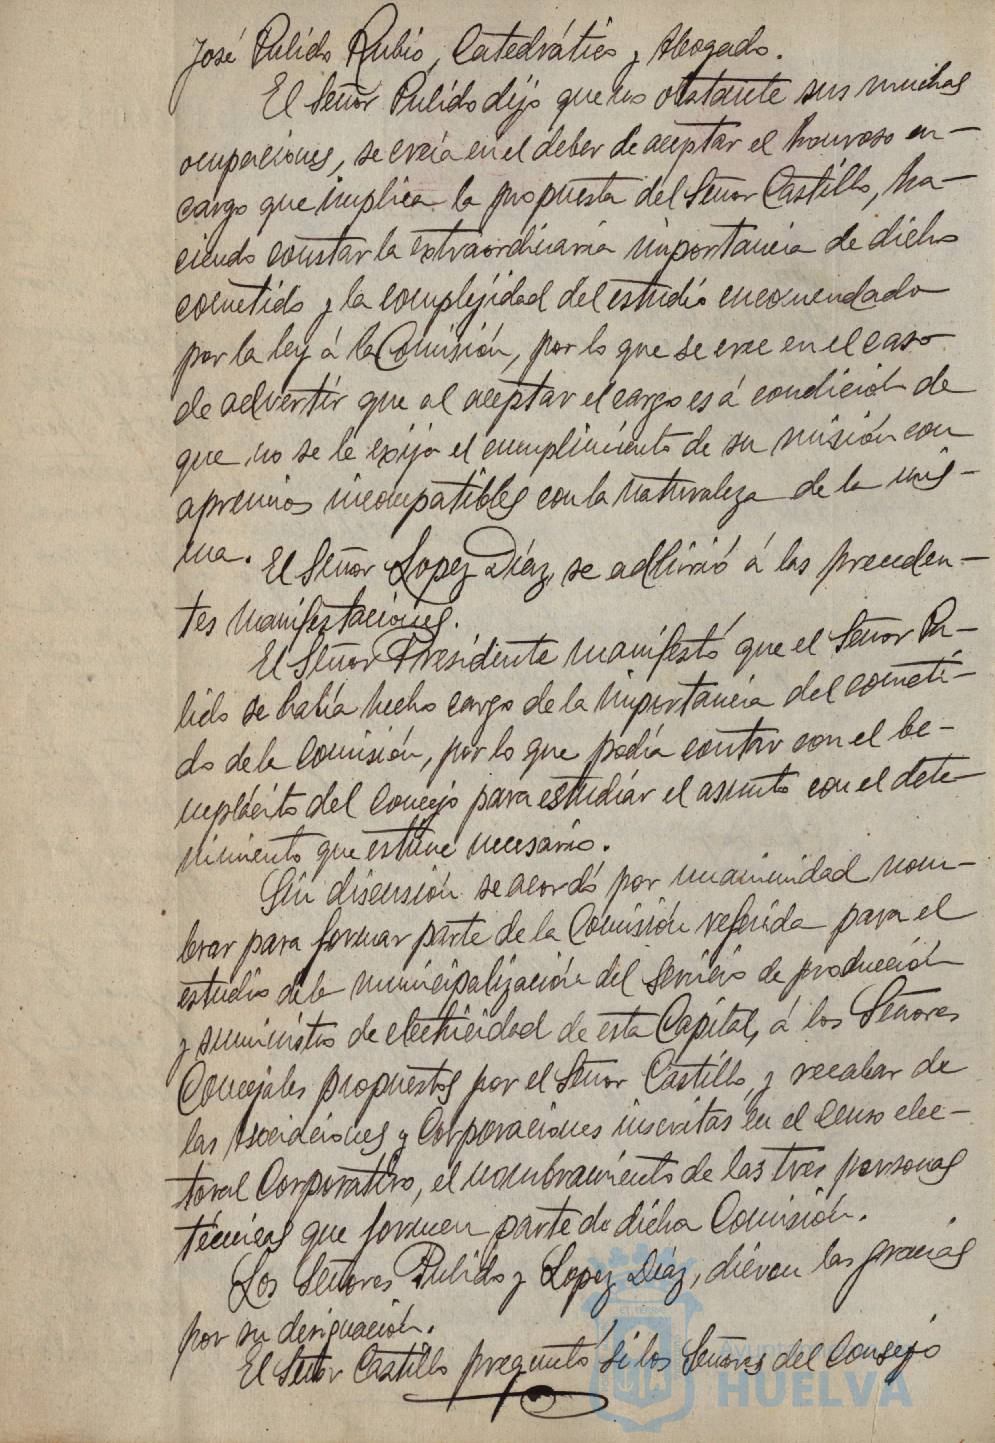 José Pulido Rubio, Catedrático y Abogado.
El Señor Pulido dijo que no obstante sus muchas
ocupaciones, se creía en el deber de aceptar el honroso en-
cargo que implica la propuesta del Señor Castillo, ha-
ciendo constar la extraordinaria importancia de dicho
cometido y la complejidad del estudio encomendado
por la ley á la Comisión, por lo que se cree en el caso
de advertir que al aceptar el cargo es á condición de
que no se le exija el cumplimiento de su misión con
apremios incompatibles con la naturaleza de la mis-
ma. El Señor Lopez Díaz, se adhirió á las preceden-
tes manifestaciones.
El Señor Presidente manifestó que el Señor Pu-
lido se había hecho cargo de la importancia del cometi-
do de la Comisión, por lo que podía contar con el be-
neplácito del Concejo para estudiar el asunto con el dete-
nimiento que estime necesario.
Sin discusión se acordó por unanimidad nom-
brar para formar parte de la Comisión referida para el
estudio de la municipalización del servicio de producción
y suministro de electricidad de esta Capital, á los Señores
Concejales propuestos por el Señor Castillo, y recabar de
las Asociaciones y Corporaciones inscritas en el Censo elec-
toral Corporativo, el nombramiento de las tres personas
técnicas que formen parte de dicha Comisión.
Los Señores Pulido y Lopez Díaz, dieron las gracias
por su designación.
El Señor Castillo preguntó si los Señores del Consejo
HUELVA